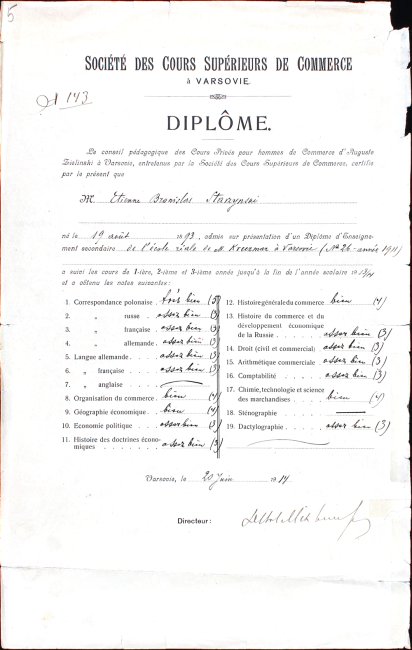 5
SOCIÉTÉ DES COURS SUPÉRIEURS DE COMMERCE
à VARSOVIE.
№ 143
DIPLÔME.
Le conseil pédagogique des Cours Privés pour hommes de Commerce d'Auguste
Zielinski à Varsovie, entretenus par la Société des Cours Supérieurs de Commerce, certifie
par le présent que
M. Etienne Bronislas Starzynski
né le 19 août 1893, admis sur présentation d'un Diplôme d'Enseigne-
ment secondaire de l'école de M. à Varsovie (№ 26 - année 1911)
a suivi les cours de 1-ière, 2-ième et 3-ième année jusqu'à la fin de l'année scolaire
et a obtenu les notes suivantes:
1. Correspondance polonaise . très bien (5)
2. „ russe . . assez bien (3)
3. „ française . assez bien (3)
4. „ allemande . assez bien (3)
5. Langue allemande . . . . . assez bien (3)
6. „ française . . . . . assez bien (3)
7. „ anglaise . . . . .
8. Organisation du commerce . bien (4)
9. Géographie économique . . bien (4)
10. Economie politique . . . . assez bien (3)
11. Histoire des doctrines écono-
miques . . . . . . . . assez bien (3)
12. Histoire générale du commerce bien (4)
13. Histoire du commerce et du
développement économique
de la Russie . . . . . assez bien (3)
14. Droit (civil et commercial) . assez bien (3)
15. Arithmétique commerciale . assez bien (3)
16. Comptabilité . . . . assez bien (3)
17. Chimie, technologie et science
des marchandises . . . . bien (4)
18. Sténographie . . . . .
19. Dactylographie . . . . . assez bien (3)
Varsovie, le 20 juin 1914
Directeur: